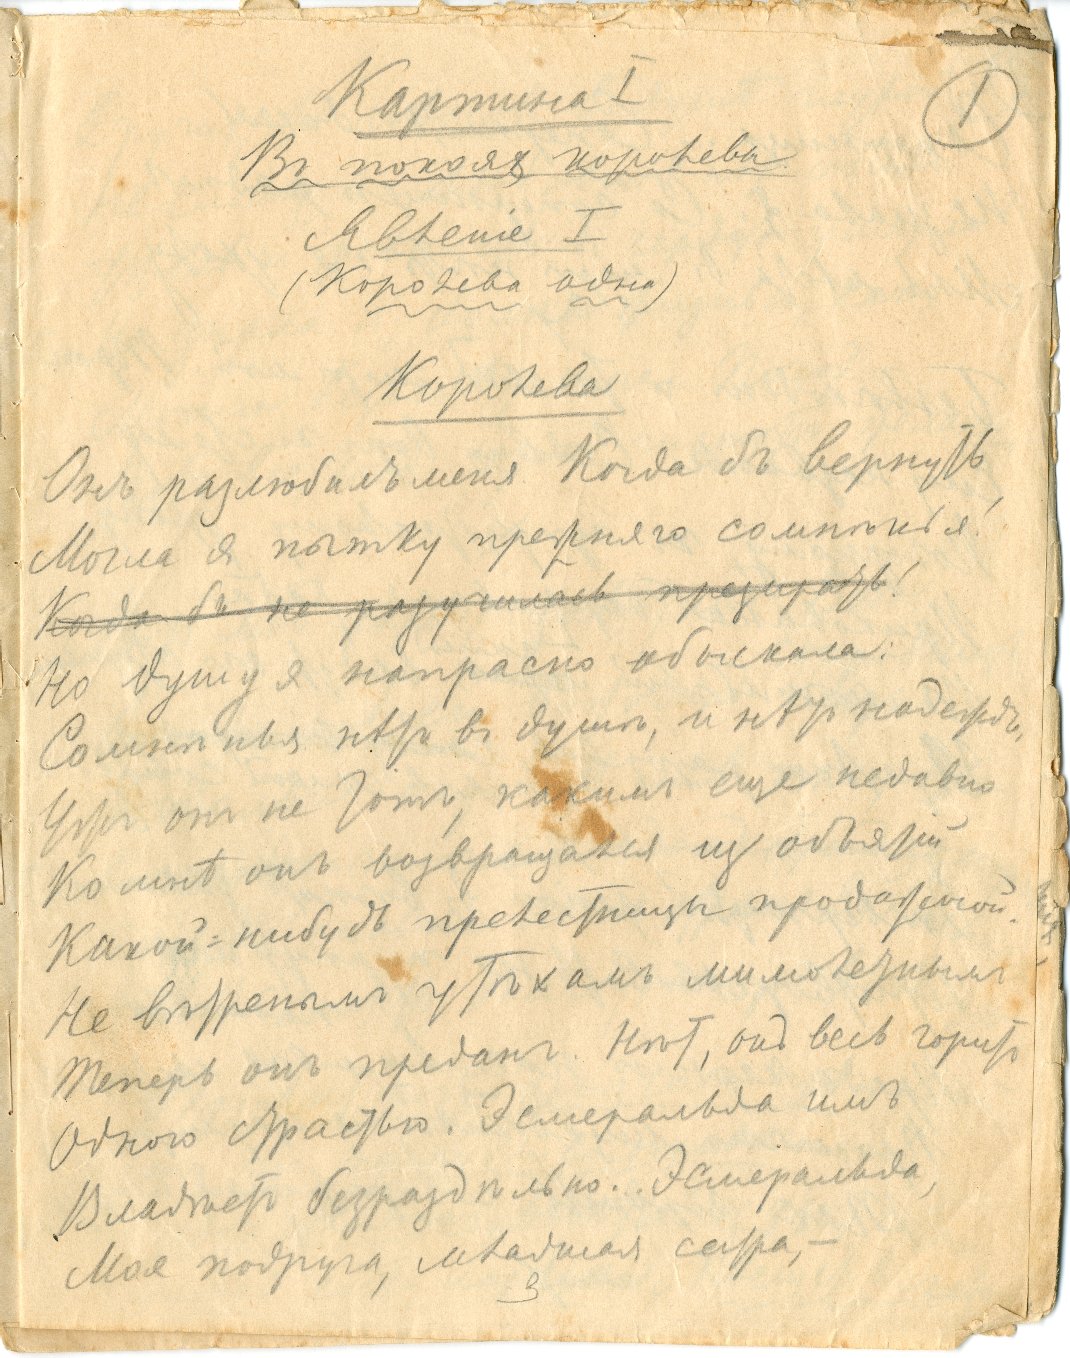 1
Картина I
Въ покояхъ королевы
Явленіе I
(Королева одна)
Королева
Онъ разлюбилъ меня. Когда бъ вернуть
Могла я пытку прежняго сомнѣнья!
Когда бъ не разучилась презирать!
Но душу я напрасно обыскала:
Сомнѣнья нѣтъ въ душѣ, и нѣтъ надеждъ.
Ужъ онъ не тотъ, какимъ еще недавно
Ко мнѣ онъ возвращался изъ объятій
Какой-нибудь прелестницы продажной.
Не вѣтренымъ утѣхамъ мимолетнымъ
Теперь онъ преданъ. Нѣтъ, онъ весь горитъ
Одною страстью. Эсмеральда имъ
Владѣетъ безраздѣльно... Эсмеральда,
Моя подруга, младшая сестра,—
3